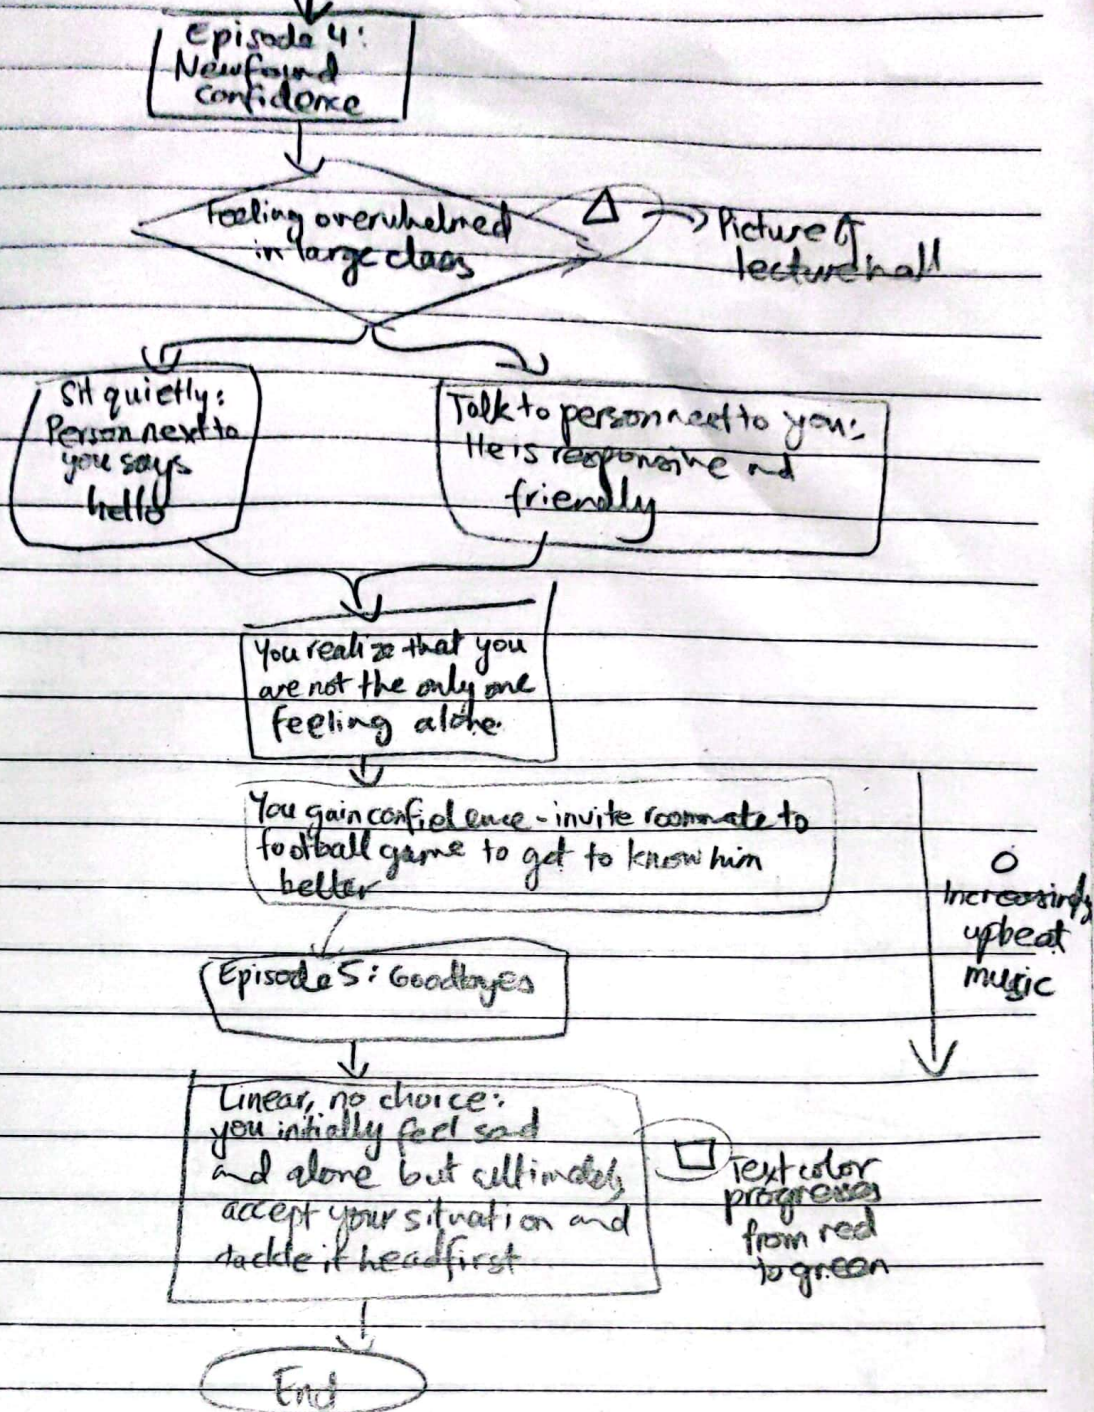 Episode 4:
Newfound
confidence
Feeling overwhelmed
in large class
Picture of
lecture hall
Sit quietly:
Person next to
you says
hello
Talk to person next to you:
He is responsive and
friendly
You realize that you
are not the only one
feeling alone.
You gain confidence - invite roommate to
football game to get to know him
better
Increasingly
upbeat
music
Episode 5: Goodbyes
Linear, no choice:
you initially feel sad
and alone but ultimately
accept your situation and
tackle it headfirst
Text color
progresses
from red
to green
End